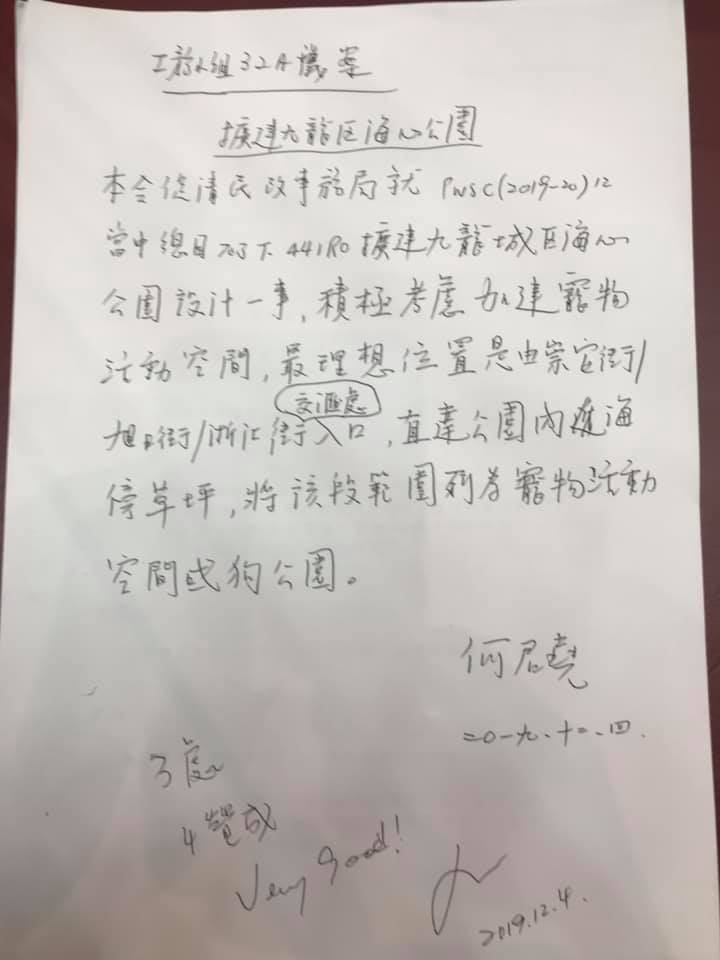 工務小組32A議案
擴建九龍区海心公園
本会促請民政事務局就 PWSC(2019-20)12
當中總目703下 441RO擴建九龍城区海心
公園設计一事,積極考慮加建寵物
活動空間,最理想位置是由崇安街/
交滙處
旭日街/浙江街入口,直達公園內進海
傍草坪,將該段範圍列為寵物活動
空間或狗公園。
何君堯
二0一九、十二、四.
3處
4贊成
Very Good!
2019.12.4.